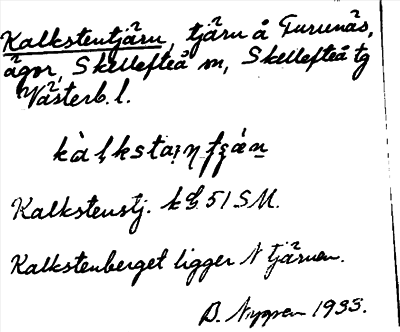 Kalkstentjärn, tjärn å Turunäs,
ägor, Skellefteå sn, Skellefteå tg
Västerb. l.
Kalkstenstj. 51 SM.
Kalkstenberget ligger N tjärnen.
B. Nygren 1933.